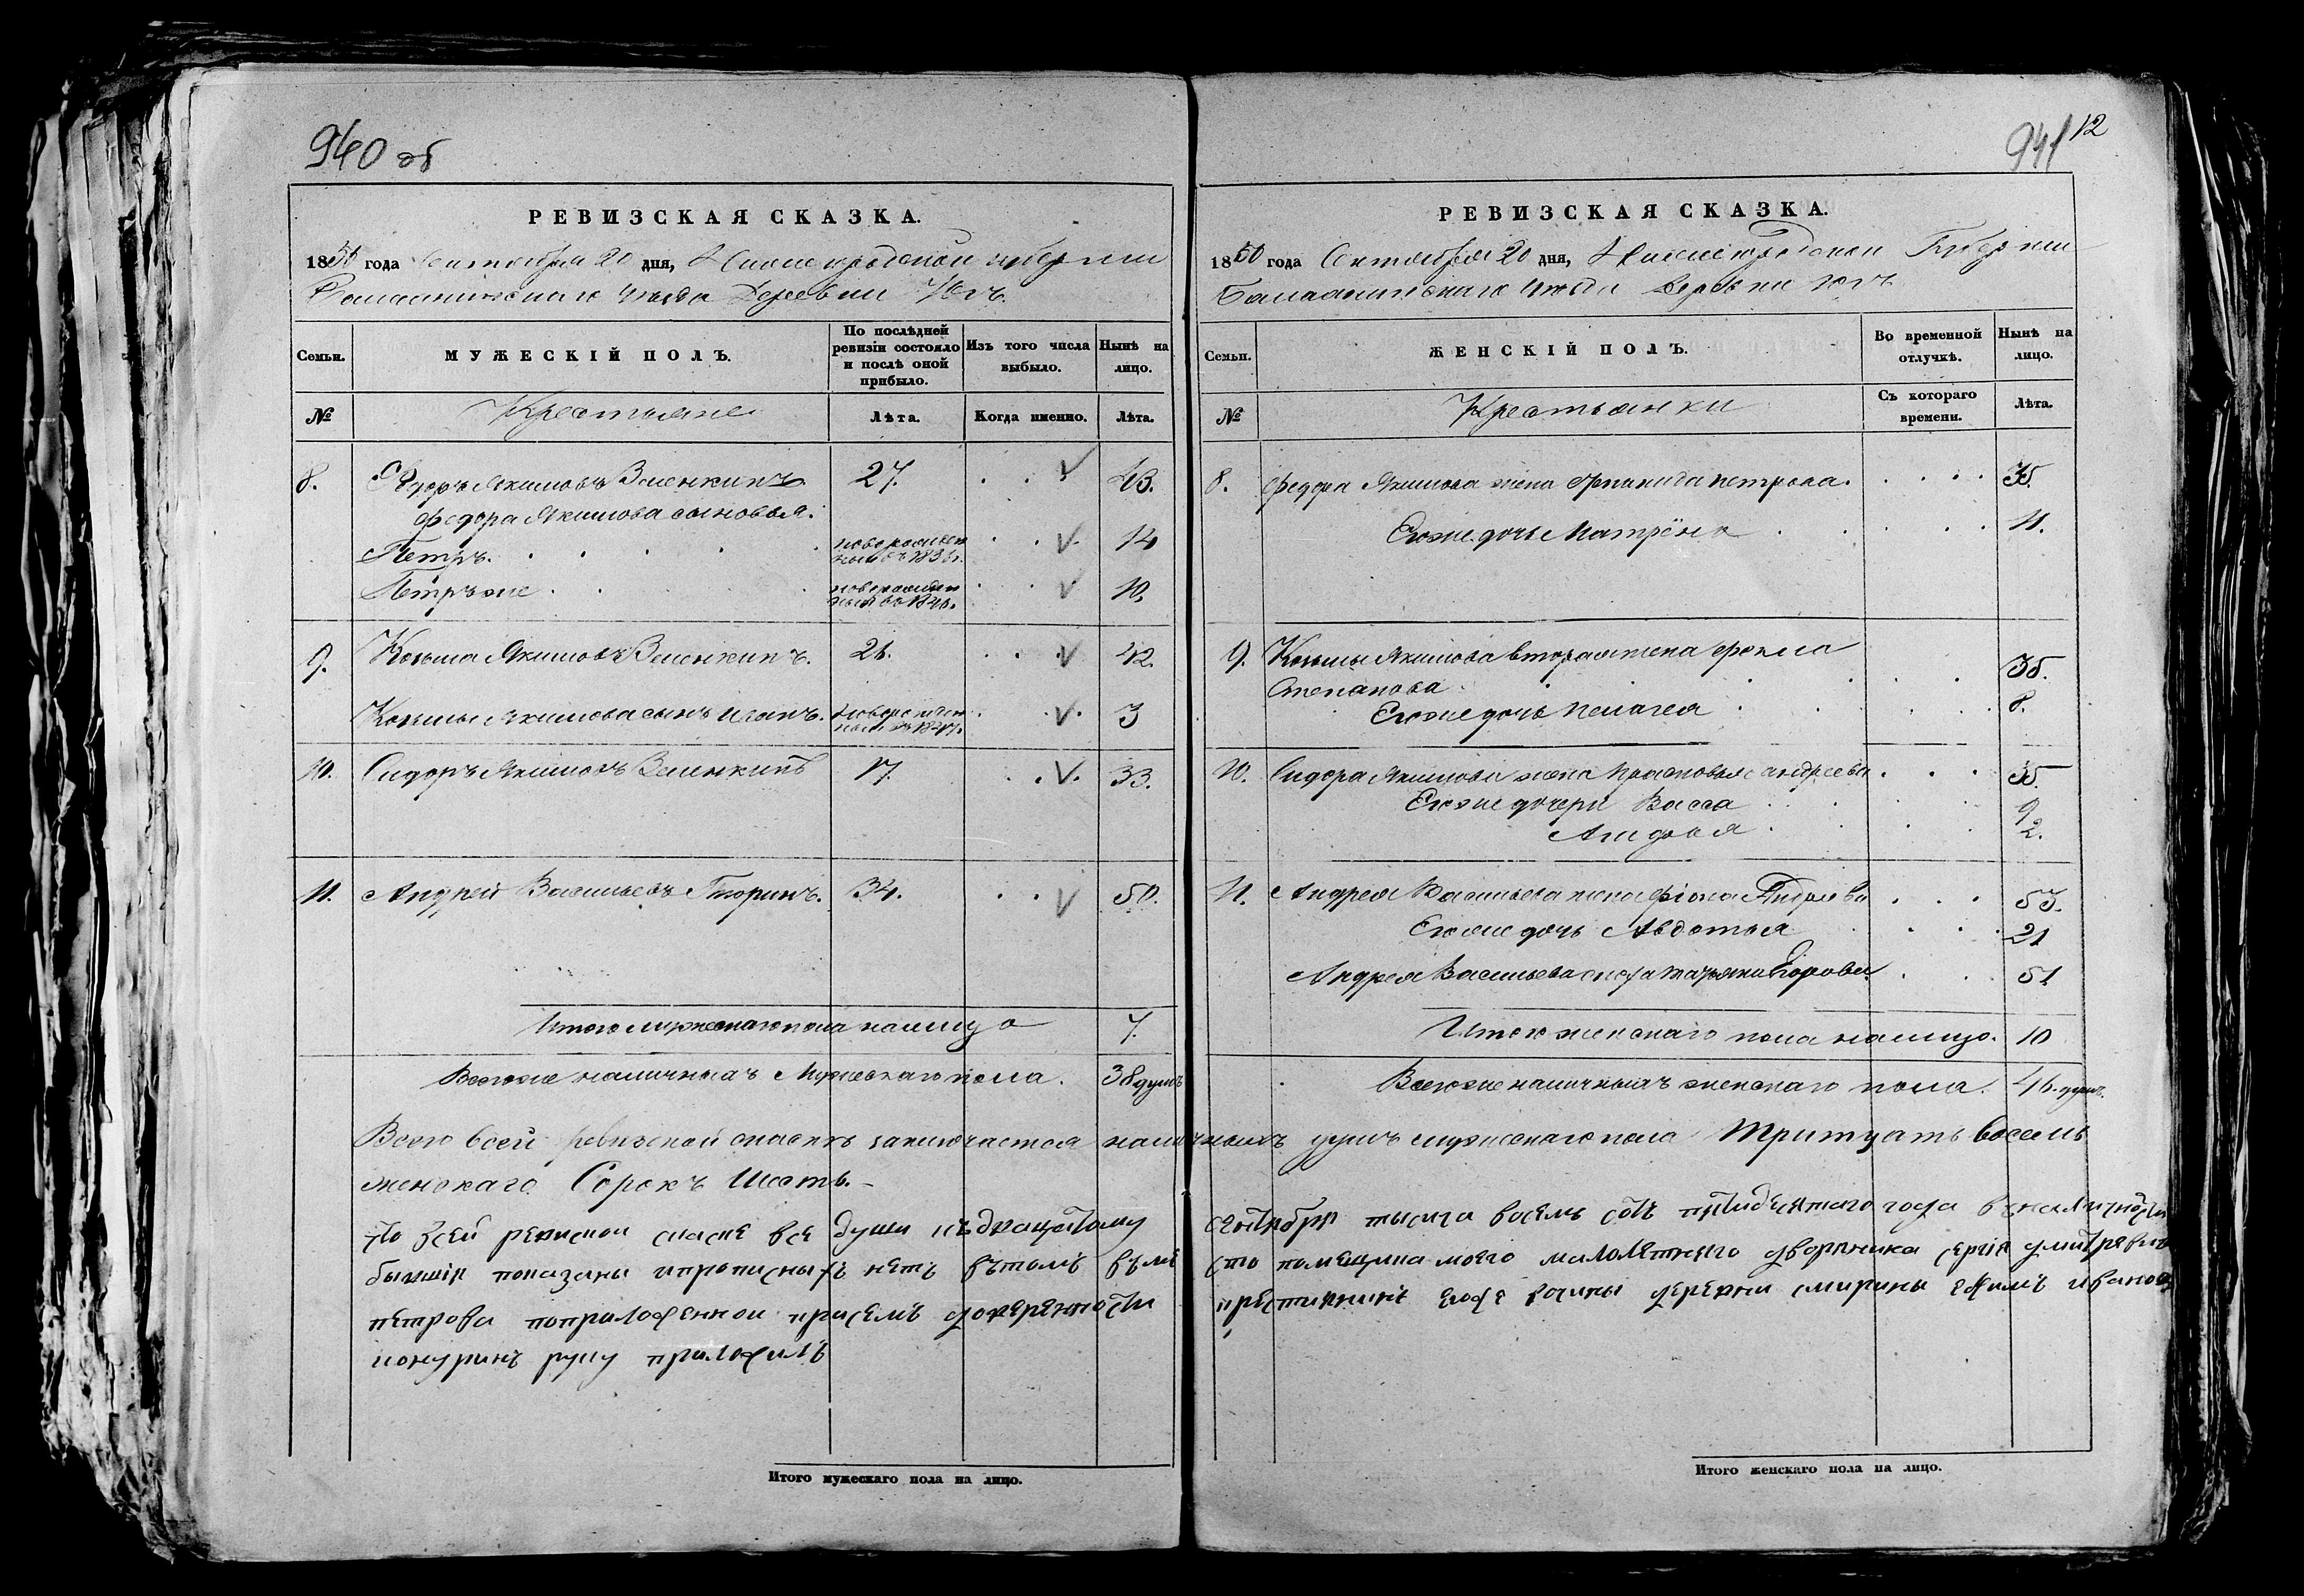 940 об
РЕВИЗСКАЯ СКАЗКА.
1850 года Сентября 20 дня, Нижегородской губернии
Балахнинскаго уезда Деревни Югъ
Семьи.
МУЖЕСКІЙ ПОЛЪ.
По послѣдней ревизіи состояло и послѣ оной прибыло.
Изъ того числа выбыло.
Нынѣ на лицо.
№
Крестьяне
Лѣта.
Когда именно.
Лѣта.
8. Федоръ Якимовъ 27. 43.
Федора Якимова сыновья.
Петръ. 14
Петръ же 10.
9. Козьма Якимовъ 26. 42.
Козьмы Якимова сынъ Иванъ. 3
10. Сидоръ Якимовъ 17. 33.
11. Андрей Васильевъ 34. 50.
Итого мужескаго пола налицо 7.
Всего же наличныхъ Мужескаго пола. 38 душъ
941 12
РЕВИЗСКАЯ СКАЗКА.
1850 года Сентября 20 дня, Нижегородской Губернии
Балахнинскаго уезда Деревни Югъ
Семьи.
ЖЕНСКІЙ ПОЛЪ.
Во временной отлучкѣ.
Нынѣ на лицо.
№
Крестьянки
Съ котораго времени.
Лѣта.
8. Федора Якимова жена петрова. 35.
Его же дочь Матрёна 11.
9. Козьмы Якимова вторая жена Фекла
Степанова 35.
Его же дочь Пелагея 8.
10. Сидора Якимова жена Прасковья андреева 35.
Его же дочери Васса 9
11. Андрея Васильева жена 53.
Его же дочь Авдотья 21
Андрея Васильева 51
Итого женскаго пола налицо. 10
Всего же наличныхъ женскаго пола. 46. душъ.
Всего в сей ревизской сказкѣ заключается наличныхъ душъ мужескаго пола Тритцать восемь
женскаго Сорокъ Шесть.
По сей ревиской скаске все души къ двацатому сентября тысяча восемь сотъ пятидесятаго года в наличности
бывшия показаны и прописныхъ нетъ вътомъ въместо помещика моего малолетнего дворянина сергия дмитревича
петрова поприложенной присемъ доверенности деревни ефимъ иванов
руку приложилъ
Итого мужескаго пола на лицо.
Итого женскаго пола на лицо.